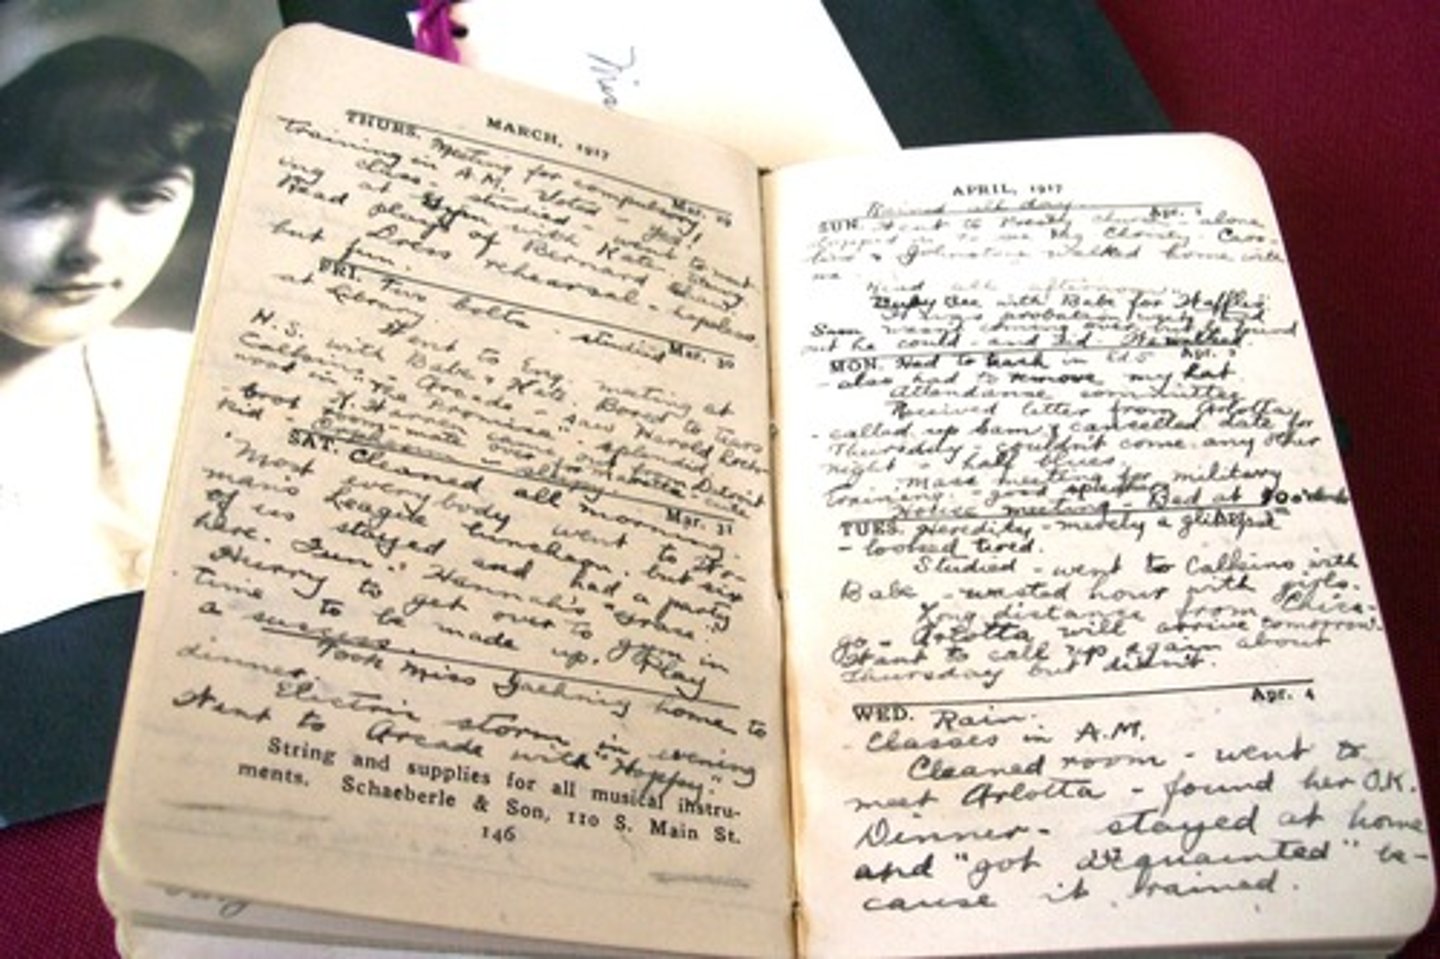 Miss
MARCH, 1917
THURS. Meeting for compulsory Mar. 29
training in A.M. Voted - yes!
ing class - studied - went to
at Gym with Kate.
Read plays of Bernard Shaw
Dress rehearsal - hopeless
but fun.
FRI. Two bolts - studied Mar. 30
at library.
Went to Eng. meeting at
H.S. with Babe & Kate. Bored to tears
Calkins - Arcade - saw Harold Lock-
wood in "The Promise" - splendid.
H. Warren came out from Detroit
room-mate over for
kid
SAT. Cleaned all morning. Mar. 31
Most everybody went to Wo-
man's League luncheon, but six
of us stayed and had a party
here. Fun! Hannah's "Grase".
Hurry to get over to gym in
time to be made up. Play
a success.
Took Miss home to
dinner.
Electric storm in evening
Went to Arcade with "Hoppy".
String and supplies for all musical instru-
ments. Schaeberle & Son, 110 S. Main St.
146
APRIL, 1917
Rained all day. Apr. 1
SUN. Went to church - alone
stopped in to see
& Johnstone walked home with
me.
Read all afternoon.
with Babe for Waffles
Sam wasn't coming over but found
out he could - and did.
MON. Had to in Ed. 5 Apr. 2
- also had to remove my hat.
Attendance committee
Received letter from Arlotta
- called up Sam & cancelled date for
Thursday - couldn't come any other
night - half blues.
Mass meeting for military
training - good speeches - Bed at 10 o'clock
House meeting
TUES. Heredity - merely a glimpse
- looked tired.
Studied - went to Calkins with
Babe - wasted hour with girls.
Long distance from Chica-
go - Arlotta will arrive tomorrow.
Want to call up again about
Thursday but didn't.
Apr. 4
WED. Rain.
Classes in A.M.
Cleaned room - went to
meet Arlotta - found her O.K.
Dinner - stayed at home
and "got acquainted" be-
cause it rained.